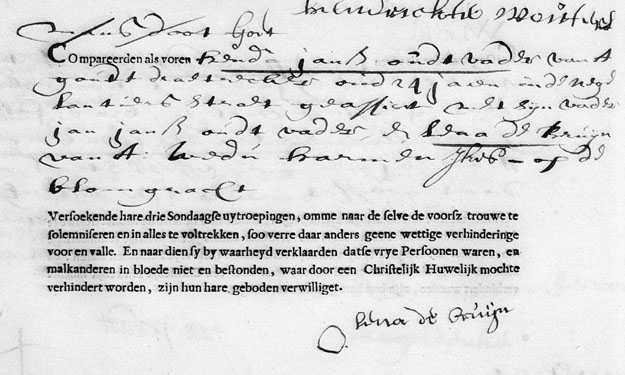 Compareerden als voren hend: janß oudtvader van A
goudt draettrecker oud 24 jaren in de
straet geassist met sijn vader
jan janß oudtvader, & lena de Bruijn
van A: wedu harmen op de
blomgracht
Versoekende hare drie Sondaagse uytroepingen, omme naar de selve de voorsz trouwe te
solemniseren en in alles te voltrekken, soo verre daar anders geene wettige verhinderinge
voor en valle. En naar dien sy by waarheyd verklaarden datse vrye Persoonen waren, en
malkanderen in bloede niet en bestonden, waar door een Christelijk Huwelijk mochte
verhindert worden, zijn hun hare geboden verwilliget.
lena de bruijn